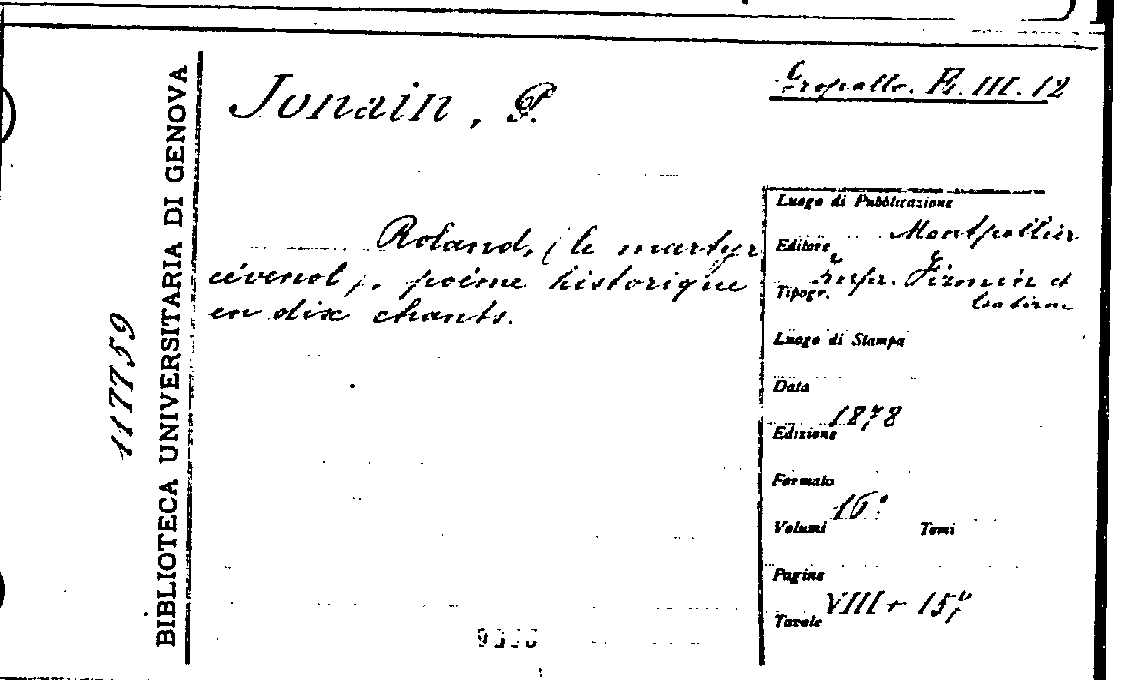 Jonain, P.
Gropallo. E. III. 12
BIBLIOTECA UNIVERSITARIA DI GENOVA
117759
Roland, (le martyr
cévenol), poème historique
en dix chants.
Luogo di Pubblicazione
Montpellier
Editore
Impr. Firmin et
Tipogr.
Cabirou
Luogo di Stampa
Data
1878
Edizione
Formato
16°
Volumi Tomi
Pagine
VIII + 157
Tavole